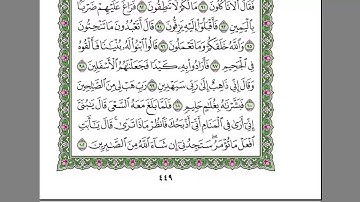 فَقَالَ أَلَا تَأْكُلُونَ ٩١ مَا لَكُمْ لَا تَنطِقُونَ ٩٢ فَرَاغَ عَلَيْهِمْ ضَرْبًا
بِٱلْيَمِينِ ٩٣ فَأَقْبَلُوٓا۟ إِلَيْهِ يَزِفُّونَ ٩٤ قَالَ أَتَعْبُدُونَ مَا تَنْحِتُونَ
٩٥ وَٱللَّهُ خَلَقَكُمْ وَمَا تَعْمَلُونَ ٩٦ قَالُوا۟ ٱبْنُوا۟ لَهُۥ بُنْيَـٰنًا فَأَلْقُوهُ
فِى ٱلْجَحِيمِ ٩٧ فَأَرَادُوا۟ بِهِۦ كَيْدًا فَجَعَلْنَـٰهُمُ ٱلْأَسْفَلِينَ ٩٨
وَقَالَ إِنِّى ذَاهِبٌ إِلَىٰ رَبِّى سَيَهْدِينِ ٩٩ رَبِّ هَبْ لِى مِنَ ٱلصَّـٰلِحِينَ
١٠٠ فَبَشَّرْنَـٰهُ بِغُلَـٰمٍ حَلِيمٍ ١٠١ فَلَمَّا بَلَغَ مَعَهُ ٱلسَّعْىَ قَالَ يَـٰبُنَىَّ
إِنِّىٓ أَرَىٰ فِى ٱلْمَنَامِ أَنِّىٓ أَذْبَحُكَ فَٱنظُرْ مَاذَا تَرَىٰ ۚ قَالَ يَـٰٓأَبَتِ
ٱفْعَلْ مَا تُؤْمَرُ ۖ سَتَجِدُنِىٓ إِن شَآءَ ٱللَّهُ مِنَ ٱلصَّـٰبِرِينَ ١٠٢
٤٤٩